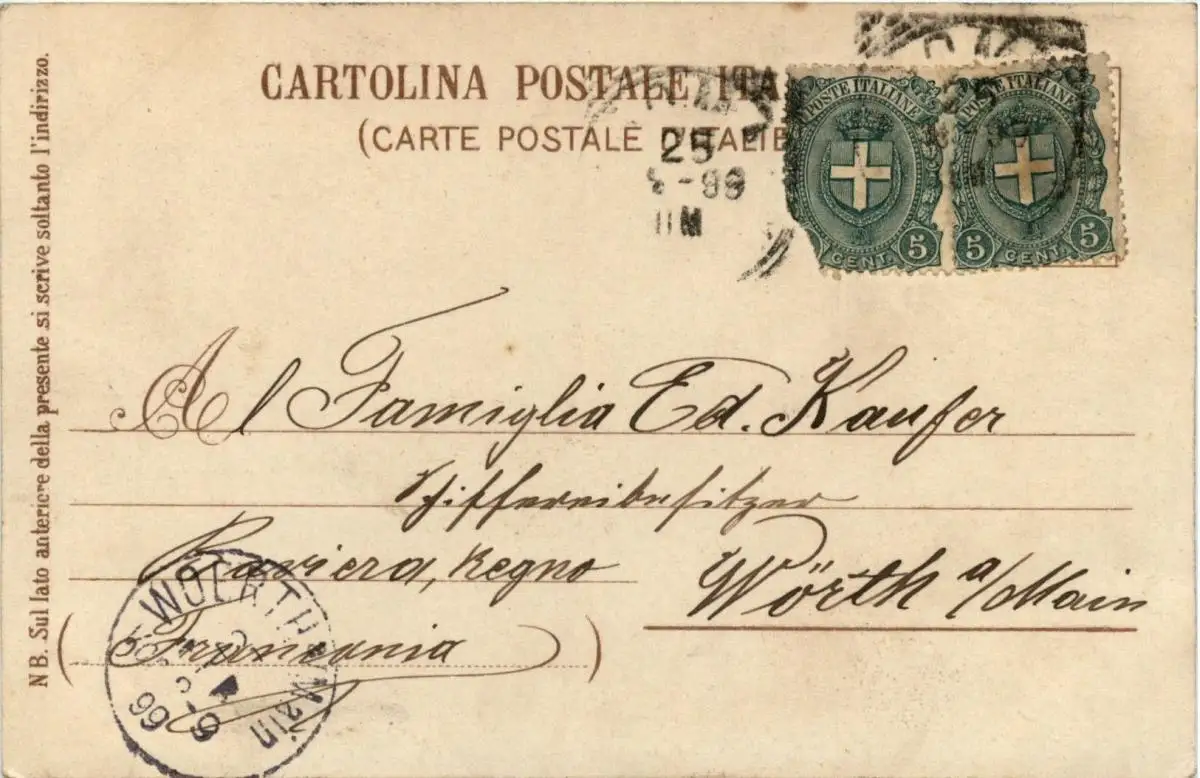 CARTOLINA POSTALE ITA
(CARTE POSTALE D'ITALIE
POSTE ITALIANE
5 CENT.
POSTE ITALIANE
5 CENT. 5
25
-99
11M
Al Famiglia Ed. Kaufer
Schiffereibesitzer
Baviera, Regno
Wörth a/Main
(Franconia)
WOERTH Main
99
NB. Sul lato anteriore della presente si scrive soltanto l'indirizzo.